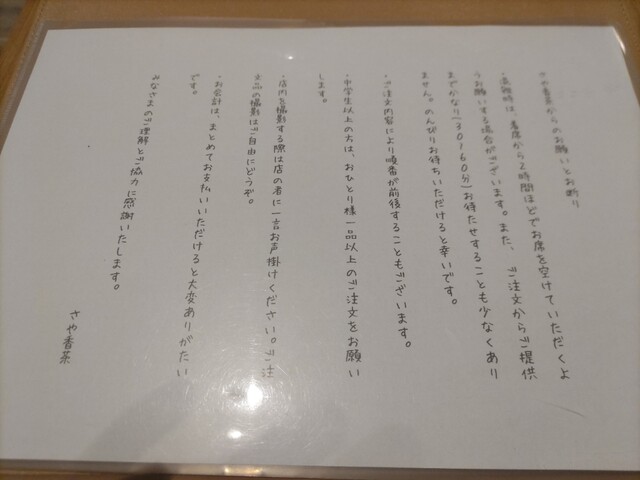 さや香茶からのお願いとお断り
・混雑時は、着席から2時間ほどでお席を空けていただくよ
うお願いする場合がございます。また、ご注文からご提供
までかなり(30/60分)お待たせすることも少なくあり
ません。のんびりお待ちいただけると幸いです。
・ご注文内容により順番が前後することもございます。
・中学生以上の方は、おひとり様一品以上のご注文をお願い
します。
・店内を撮影する際は店の者に一言お声掛けください。ご注
文品の撮影はご自由にどうぞ。
・お会計は、まとめてお支払いいただけると大変ありがたい
です。
みなさまのご理解とご協力に感謝いたします。
さや香茶